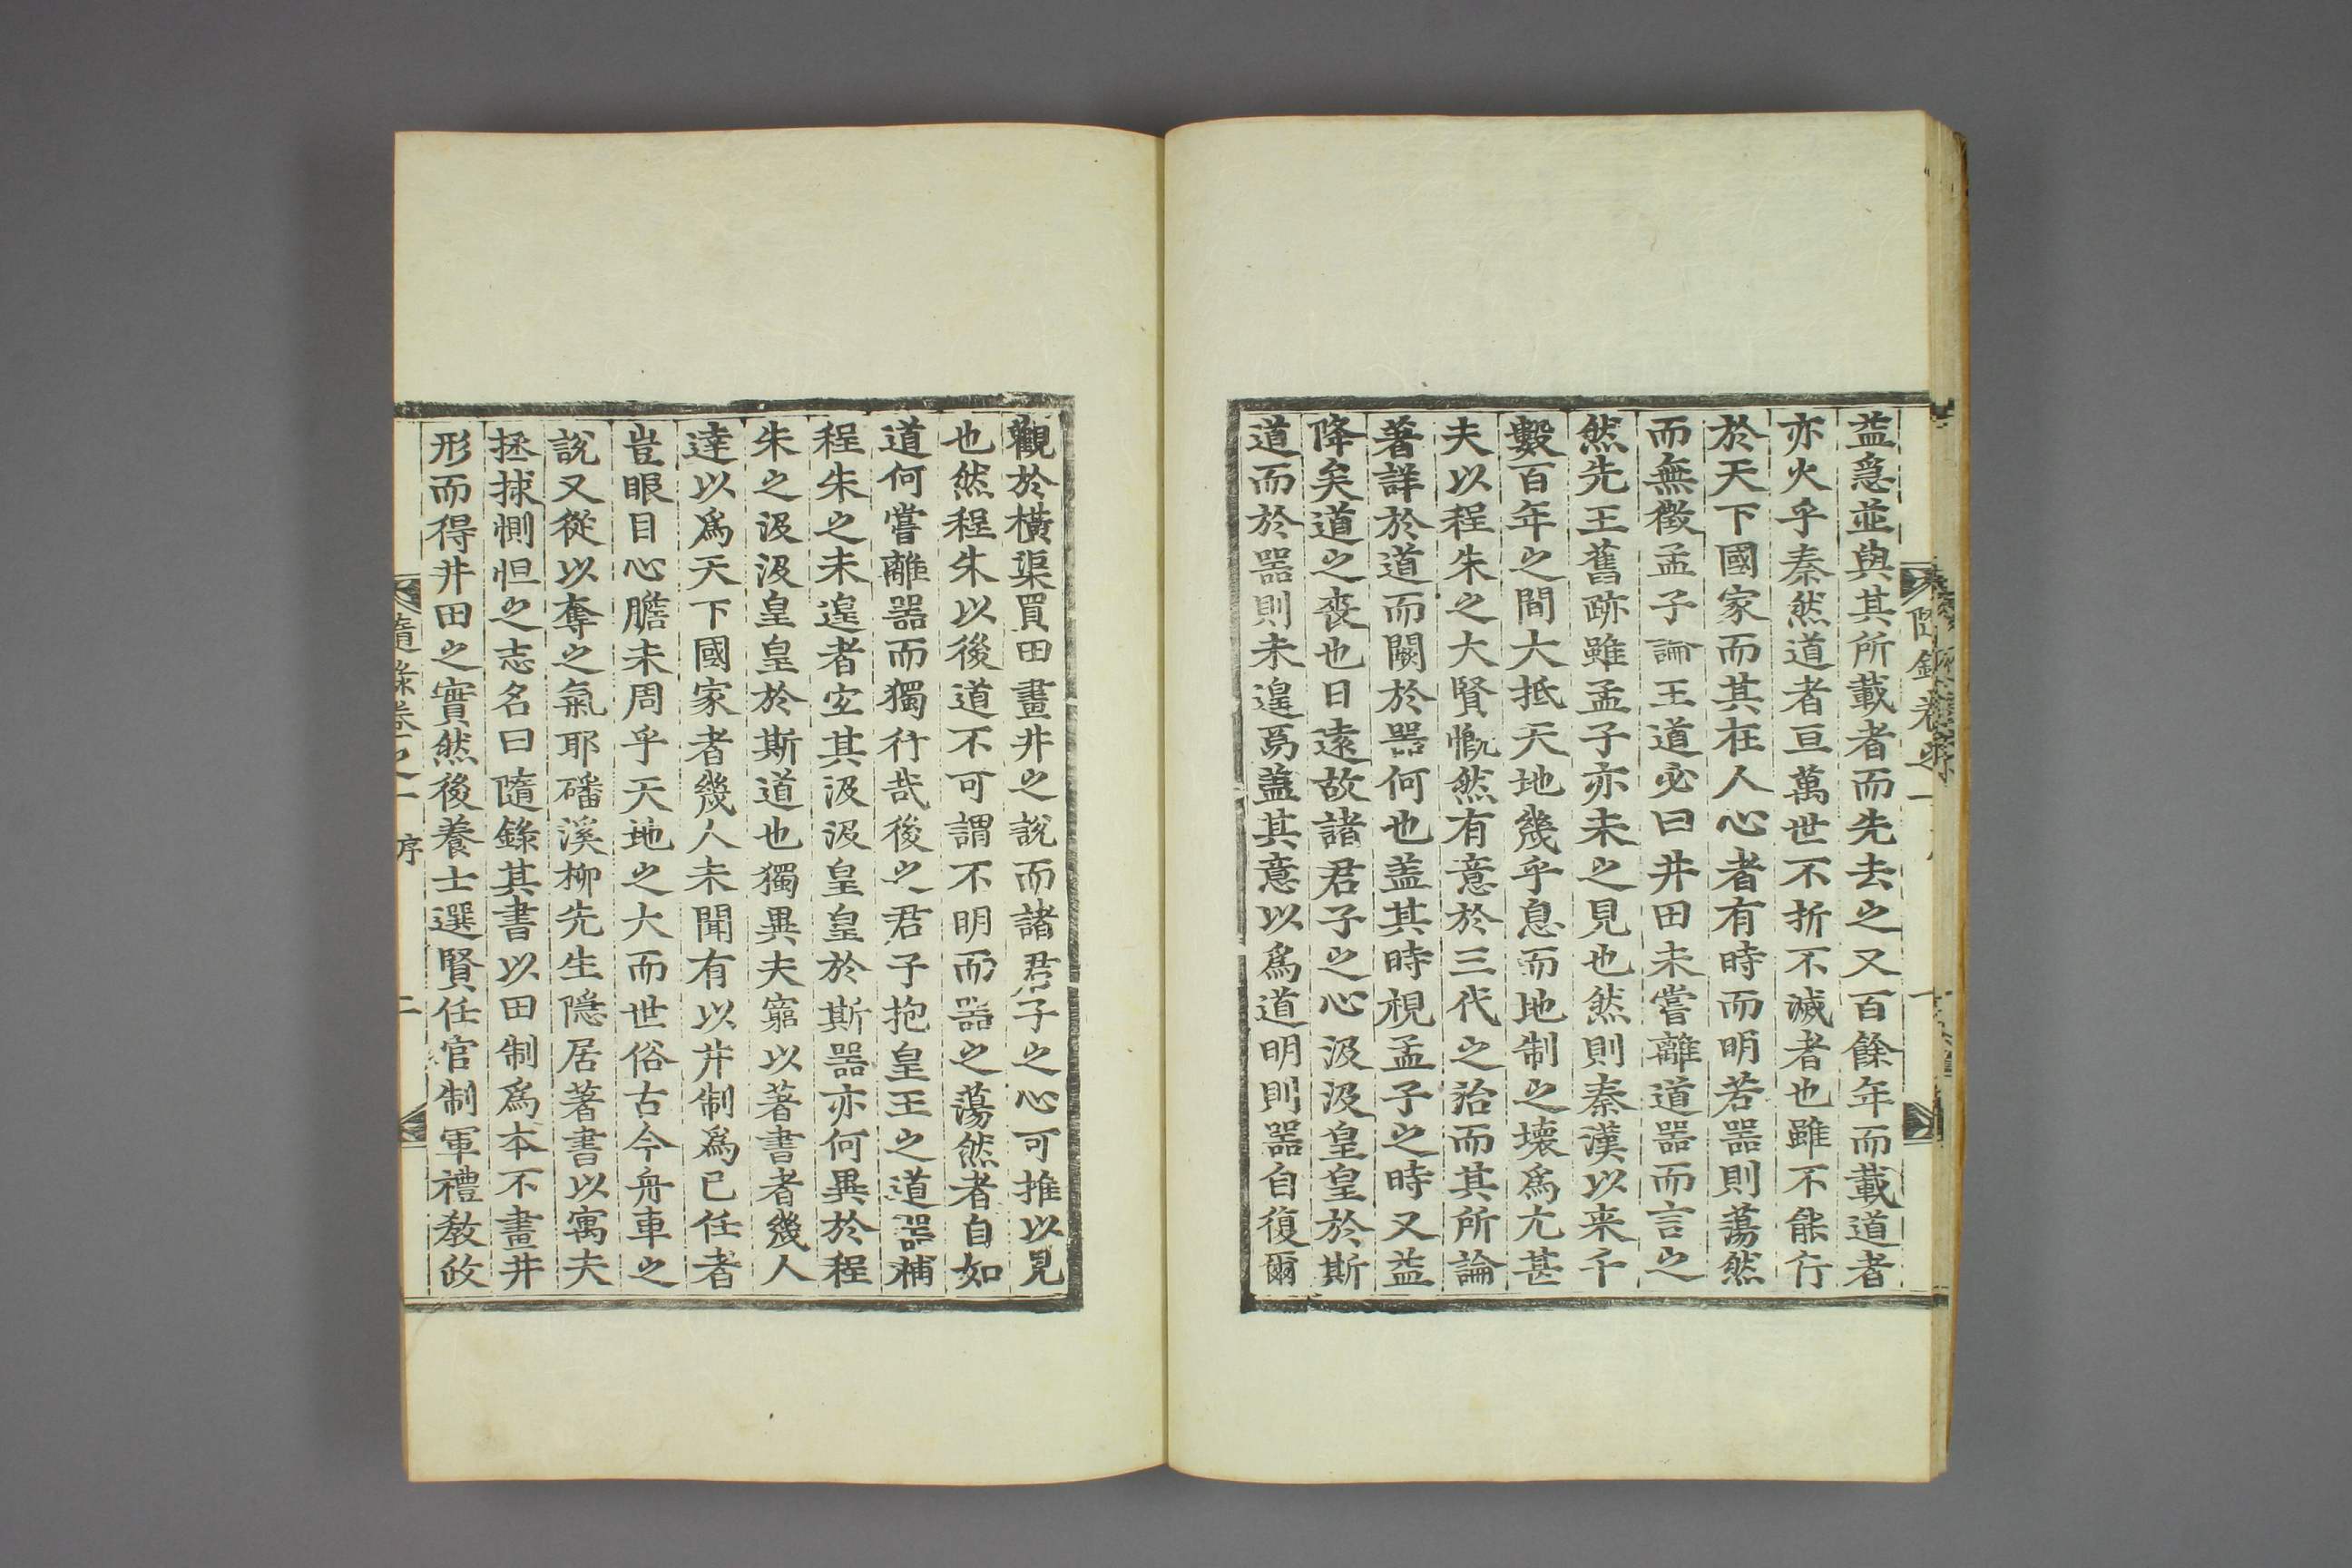 益急並與其所載者而先去之又百餘年而載道者
亦火乎秦然道者亘萬世不折不滅者也雖不能行
於天下國家而其在人心者有時而明若器則蕩然
而無徵孟子論王道必曰井田未嘗離道器而言之
然先王舊跡雖孟子亦未之見也然則秦漢以来千
數百年之間大抵天地幾乎息而地制之壊爲尤甚
夫以程朱之大賢慨然有意於三代之治而其所論
著詳於道而闕於器何也盖其時視孟子之時又益
降矣道之喪也日遠故諸君子之心汲汲皇皇於斯
道而於器則未遑焉盖其意以爲道明則器自復爾
觀於横渠買田畫井之說而諸君子之心可推以見
也然程朱以後道不可謂不明而器之蕩然者自如
道何嘗離器而獨行哉後之君子抱皇王之道器補
程朱之未遑者宜其汲汲皇皇於斯器亦何異於程
朱之汲汲皇皇於斯道也獨異夫窮以著書者幾人
達以爲天下國家者幾人未聞有以井制爲已任者
豈眼目心膽未周乎天地之大而世俗古今舟車之
說又從以奪之氣耶磻溪柳先生隱居著書以寓夫
拯捄惻怛之志名曰隨錄其書以田制爲本不畫井
形而得井田之實然後養士選賢任官制軍禮敎政
隨錄卷之一 序 二